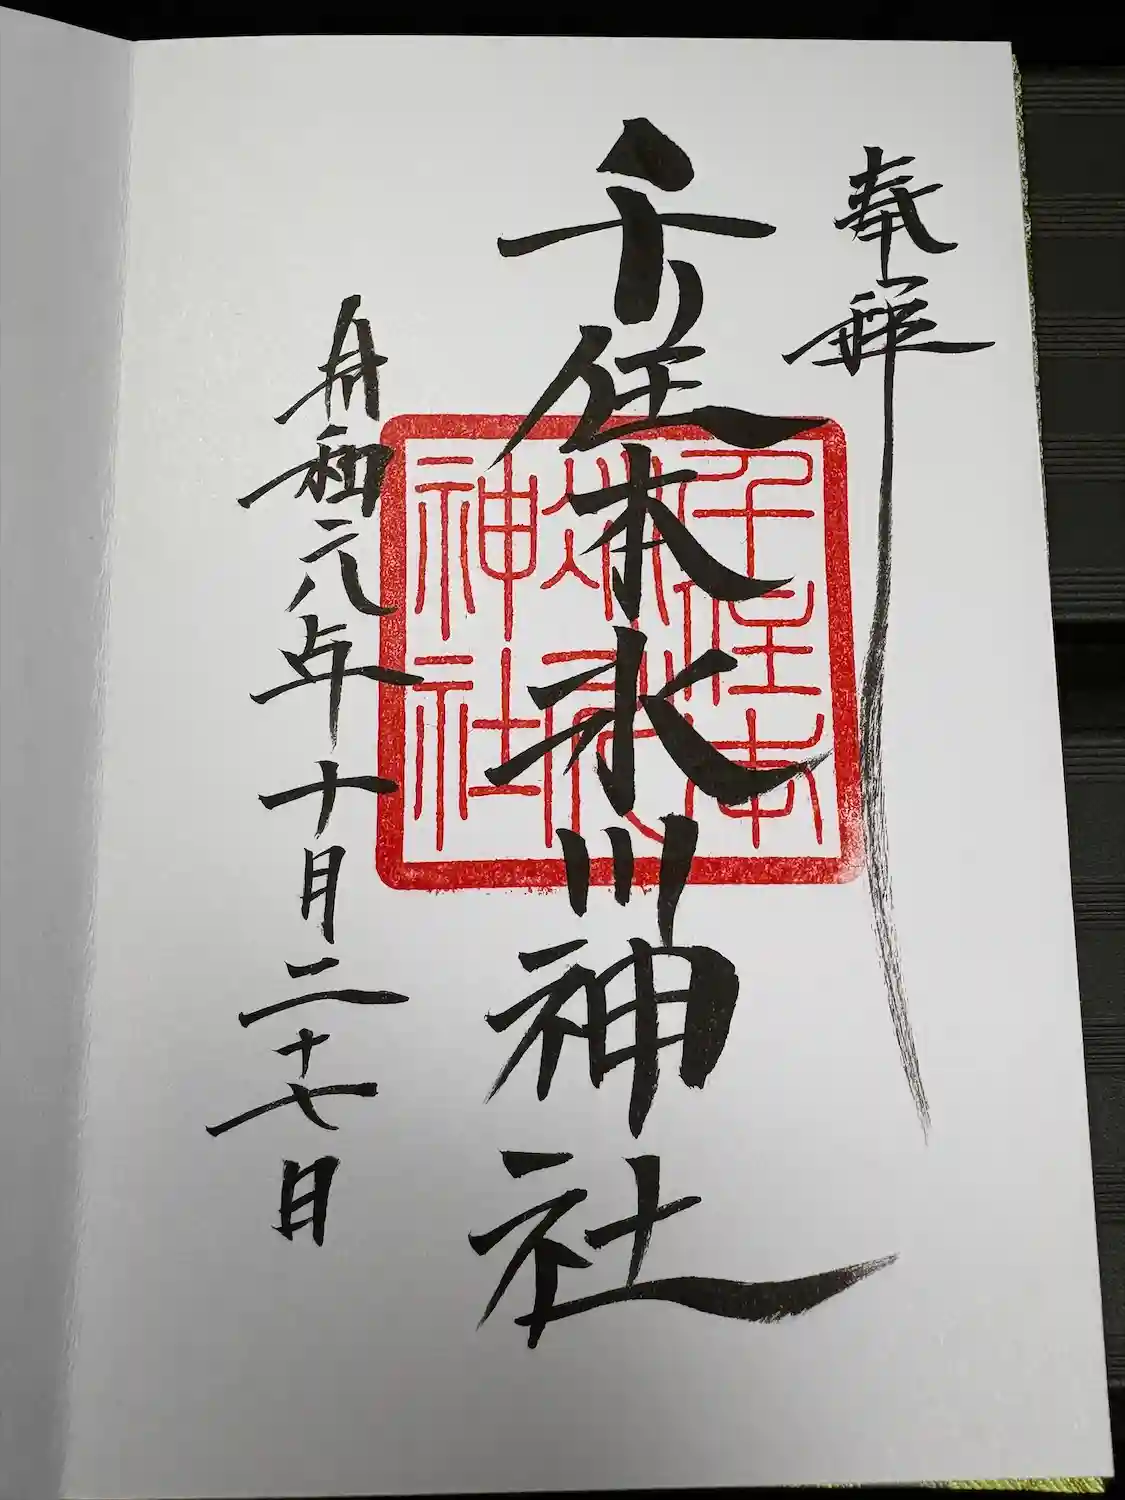 奉拝
千住本氷川神社
令和六年十月二十七日
千住本
氷川
神社